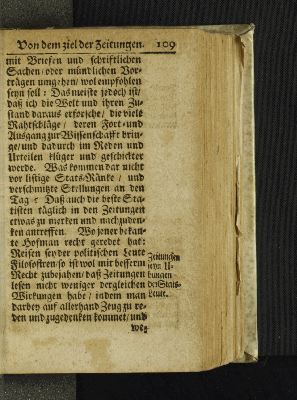 Von dem ziel der Zeitungen. 109
mit Briefen und schriftlichen
Sachen/oder mündlichen Vor-
trägen umgehen/wol empfohlen
seyn soll: Das meiste jedoch ist/
daß ich die Welt und ihren Zu-
stand daraus erforsche/die viele
Rahtschläge/ deren Fort-und
Ausgang zur Wissenschaft brin-
ge/und dadurch im Reden und
Urteilen klüger und geschickter
werde. Was kommen dar nicht
vor listige Stats-Ränke/ und
verschmitzte Stellungen an den
Tag? Daß auch die beste Sta-
tisten täglich in den Zeitungen
etwas zu merken und nachzuden-
ken antreffen. Wo jener bekan-
te Hofman recht geredet hat:
Reisen sey der politischen Leute
Filosofiren/so ist wol mit besserm
Recht zubejahen/daß Zeitungen
lesen nicht weniger dergleichen
Wirkungen habe/ indem man
darbey auf allerhand Zeug zu re-
den und zugedenken kommet/und
we-
Zeitungen
seyn U-
bungen
der Stats-
Leute.